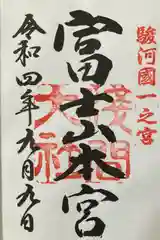 駿河國一之宮
富士山本宮
淺間大社
令和四年九月九日